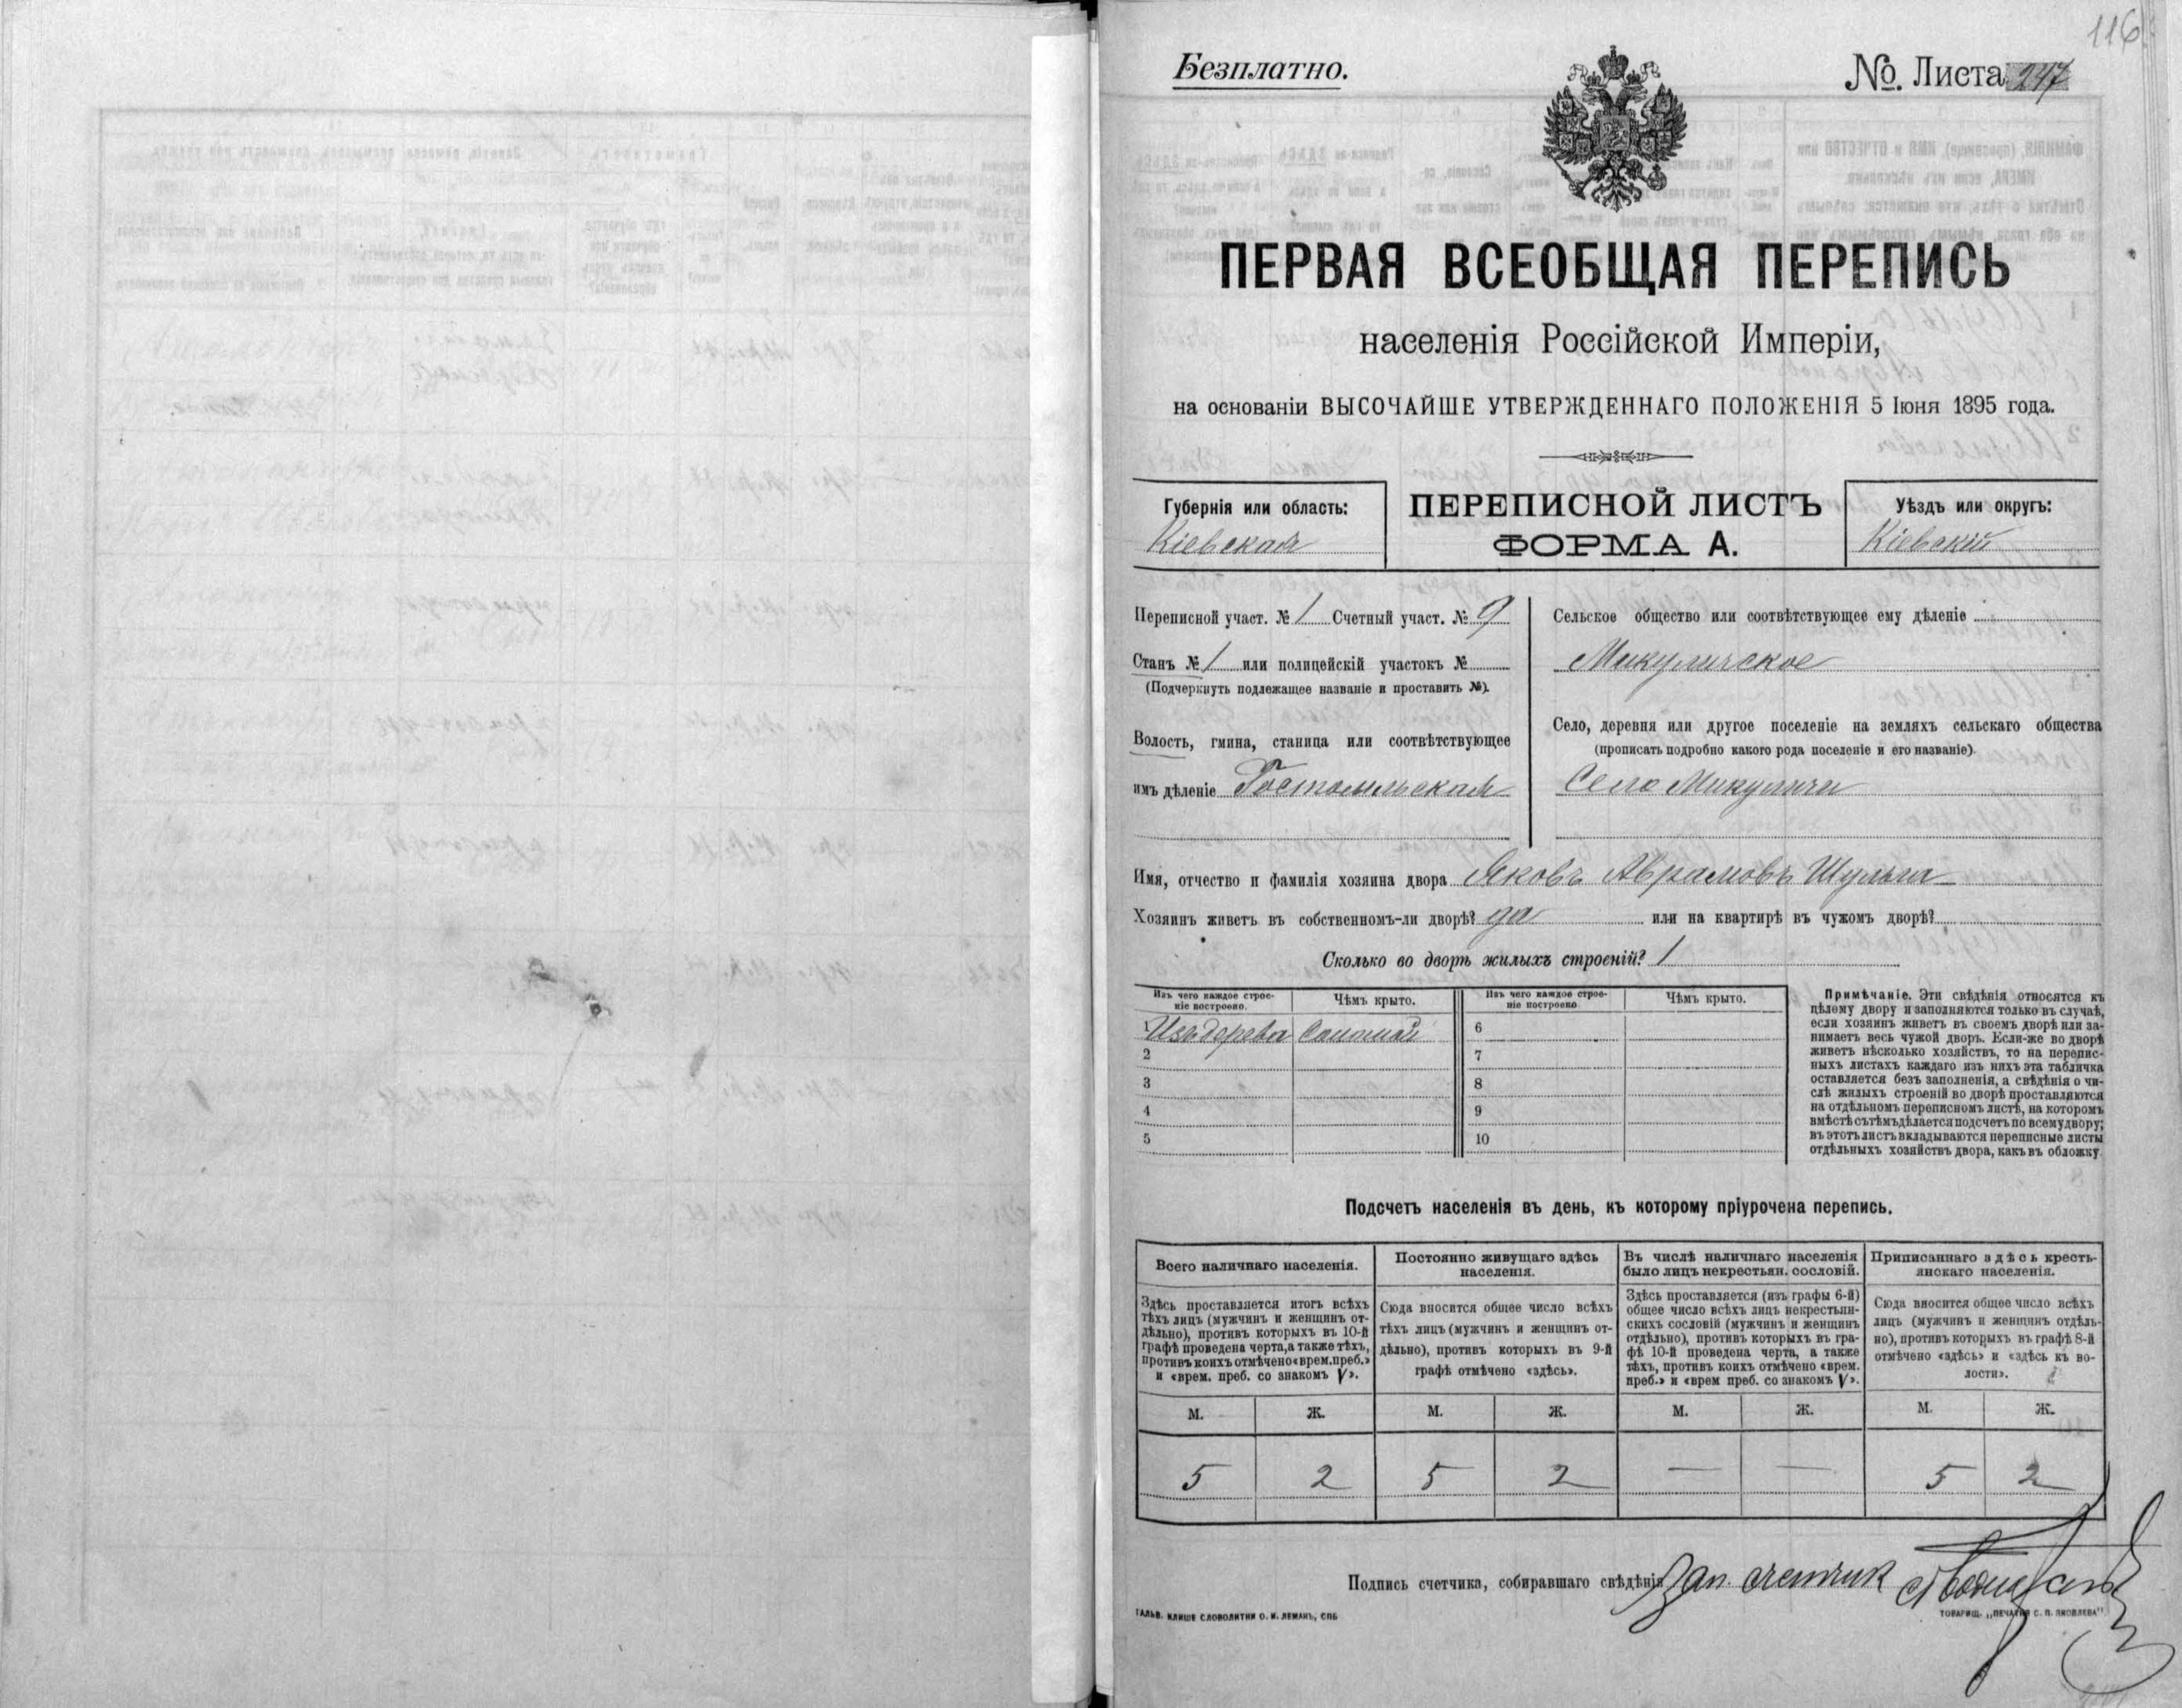 116
Безплатно.
№ Листа 247
ПЕРВАЯ ВСЕОБЩАЯ ПЕРЕПИСЬ
населенія Россійской Имперіи,
на основаніи ВЫСОЧАЙШЕ УТВЕРЖДЕННАГО ПОЛОЖЕНІЯ 5 Іюня 1895 года.
Губернія или область:
Кіевская
ПЕРЕПИСНОЙ ЛИСТЪ
ФОРМА А.
Уѣздъ или округъ:
Кіевскій
Переписной участ. № 1 Счетный участ. № 9
Станъ № 1 или полицейскій участокъ №
(Подчеркнуть подлежащее названіе и проставить №).
Волость, гмина, станица или соотвѣтствующее
имъ дѣленіе Гостомельская
Сельское общество или соотвѣтствующее ему дѣленіе
Микуличское
Село, деревня или другое поселеніе на земляхъ сельскаго общества
(прописать подробно какого рода поселеніе и его названіе).
Село Микуличи
Имя, отчество и фамилія хозяина двора Яковъ Аврамовъ Шульга
Хозяинъ живетъ въ собственномъ-ли дворѣ? да или на квартирѣ въ чужомъ дворѣ?
Сколько во дворѣ жилыхъ строеній? 1
Изъ чего каждое строе-
ніе построено.
Чѣмъ крыто.
Изъ чего каждое строе-
ніе построено.
Чѣмъ крыто.
1 Изъ дерева Соломой
2
3
4
5
6
7
8
9
10
Примѣчаніе. Эти свѣдѣнія относятся къ
цѣлому двору и заполняются только въ случаѣ,
если хозяинъ живетъ въ своемъ дворѣ или за-
нимаетъ весь чужой дворъ. Если-же во дворѣ
живетъ нѣсколько хозяйствъ, то на перепис-
ныхъ листахъ каждаго изъ нихъ эта табличка
оставляется безъ заполненія, а свѣдѣнія о чи-
слѣ жилыхъ строеній во дворѣ проставляются
на отдѣльномъ переписномъ листѣ, на которомъ
вмѣстѣ съ тѣмъ дѣлается подсчетъ по всему двору;
въ этотъ листъ вкладываются переписные листы
отдѣльныхъ хозяйствъ двора, какъ въ обложку.
Подсчетъ населенія въ день, къ которому пріурочена перепись.
Всего наличнаго населенія.
Постоянно живущаго здѣсь
населенія.
Въ числѣ наличнаго населенія
было лицъ некрестьян. сословій.
Приписаннаго здѣсь кресть-
янскаго населенія.
Здѣсь проставляется итогъ всѣхъ
тѣхъ лицъ (мужчинъ и женщинъ от-
дѣльно), противъ которыхъ въ 10-й
графѣ проведена черта, а также тѣхъ,
противъ коихъ отмѣчено «врем. преб.»
и «врем. преб. со знакомъ V».
Сюда вносится общее число всѣхъ
тѣхъ лицъ (мужчинъ и женщинъ от-
дѣльно), противъ которыхъ въ 9-й
графѣ отмѣчено «здѣсь».
Здѣсь проставляется (изъ графы 6-й)
общее число всѣхъ лицъ некрестьян-
скихъ сословій (мужчинъ и женщинъ
отдѣльно), противъ которыхъ въ гра-
фѣ 10-й проведена черта, а также
тѣхъ, противъ коихъ отмѣчено «врем.
преб.» и «врем преб. со знакомъ V».
Сюда вносится общее число всѣхъ
лицъ (мужчинъ и женщинъ отдѣль-
но), противъ которыхъ въ графѣ 8-й
отмѣчено «здѣсь» и «здѣсь къ во-
лости».
М. Ж. М. Ж. М. Ж. М. Ж.
5 2 5 2 — — 5 2
Подпись счетчика, собиравшаго свѣдѣнія Зап. счетчик
ГАЛЬВ. КЛИШЕ СЛОВОЛИТНИ О. И. ЛЕМАНЪ, СПБ
ТОВАРИЩ. „ПЕЧАТНЯ С. П. ЯКОВЛЕВА"